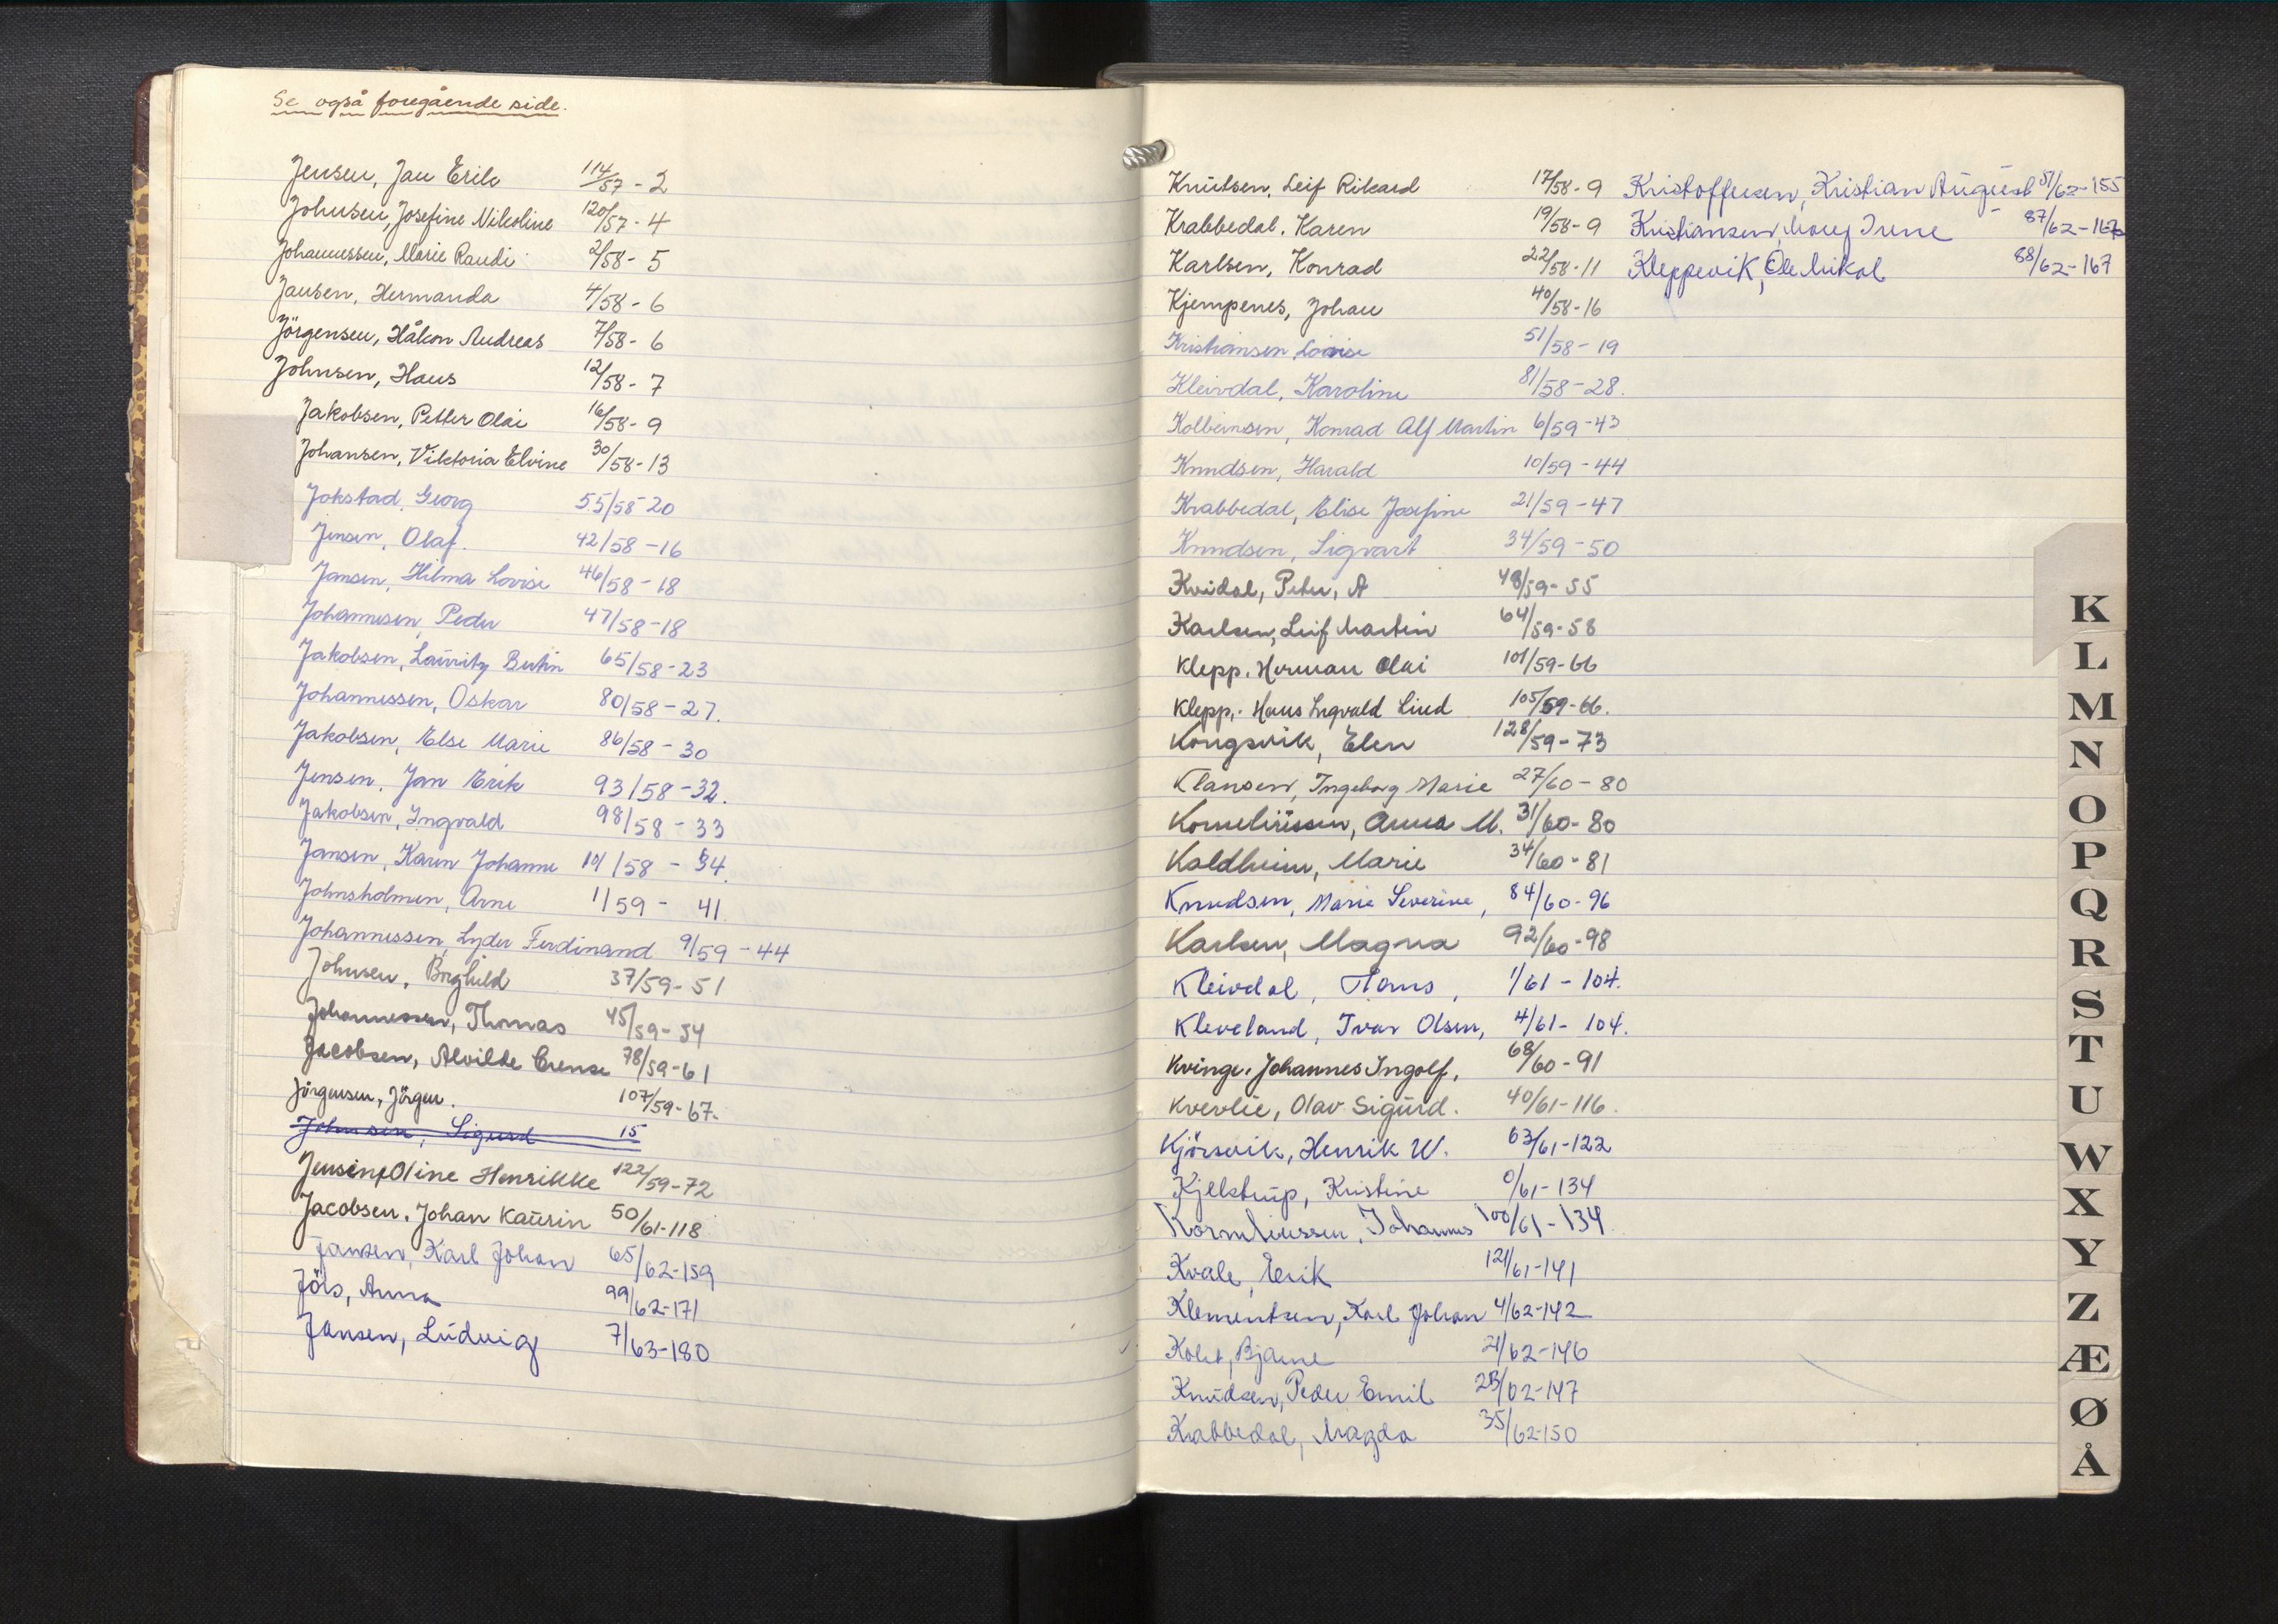 Se også foregående side.
Jensen, Jan Erik 114/57 - 2
Johnsen, Josefine Nikoline 120/57 - 4
Johannessen, Marie Randi 2/58 - 5
Jansen, Hermanda 4/58 - 6
Jörgensen, Håkon Andreas 7/58 - 6
Johnsen, Hans 12/58 - 7
Jakobsen, Petter Olai 16/58 - 9
Johansen, Viktoria Elvine 30/58 - 13
Jokstad, Georg 55/58 - 20
Jensen, Olaf. 42/58 - 16
Jansen, Hilma Lovise 46/58 - 18
Johannesen, Peder 47/58 - 18
Jakobsen, Lauritz Butin 65/58 - 23
Johannessen, Oskar 80/58 - 27.
Jakobsen, Else Marie 86/58 - 30
Jensen, Jan Erik 93/58 - 32.
Jakobsen, Ingvald 98/58 - 33
Jansen, Karen Johanne 101/58 - 34.
Johnsholmen, Arne 1/59 - 41.
Johannessen, Lyder Ferdinand 9/59 - 44
Johnsen, Borghild 37/59 - 51
Johannessen, Thomas 45/59 - 54
Jacobsen, Alvilde 78/59 - 61
Jörgensen, Jörgen. 107/59 - 67.
Johnsen, Sigurd 15
Jensen, Oline Henrikke 122/59 - 72
Jacobsen, Johan Kaurin 50/61 - 118
Jansen, Karl Johan 65/62 - 159
Jörs, Anna 99/62 - 171
Jansen, Ludvig 7/63 - 180
Knutsen, Leif Rikard 17/58 - 9
Krabbedal, Karen 19/58 - 9
Karlsen, Konrad 22/58 - 11
Kjempenes, Johan 40/58 - 16
Kristiansen, Lovise 51/58 - 19
Kleivdal, Karoline 81/58 - 28.
Kolbeinsen, Konrad Alf Martin 6/59 - 43
Knudsen, Harald 10/59 - 44
Krabbedal, Elise Josefine 21/59 - 47
Knudsen, Sigvart 34/59 - 50
Kvidal, Peter, A 48/59 - 55
Karlsen, Leif Martin 64/59 - 58
Klepp, Herman Olai 101/59 - 66
Klepp, Hans Ingvald Lind 105/59 - 66.
Kongsvik, Elen 128/59 - 73
Klausen, Ingeborg Marie 27/60 - 80
Korneliussen, Anna M. 31/60 - 80
Kaldheim, Marie 34/60 - 81
Knudsen, Marie Severine, 84/60 - 96
Karlsen, Magna 92/60 - 98
Kleivdal, Hans, 1/61 - 104.
Kleveland, Ivar Olsen, 4/61 - 104.
Kvinge, Johannes Ingolf, 68/60 - 91
Kvevlie, Olav Sigurd. 40/61 - 116.
Kjörsvik, Henrik W. 63/61 - 122
Kjelstrup, Kristine 0/61 - 134
Korneliussen, Johannes 100/61 - 134
Kvale, Eirik 121/61 - 141
Klementsen, Karl Johan 4/62 - 142
Bjarne 21/62 - 146
Knudsen, Peder Emil 23/62 - 147
Krabbedal, Magda 35/62 - 150
Kristoffersen, Kristian August 51/62 - 155
Kristiansen, Mary Irene 87/62 - 167
Kleppevik, Ole Mikal 88/62 - 167
K
L
M
N
O
P
Q
R
S
T
U
W
X
Y
Z
Æ
Ø
Å